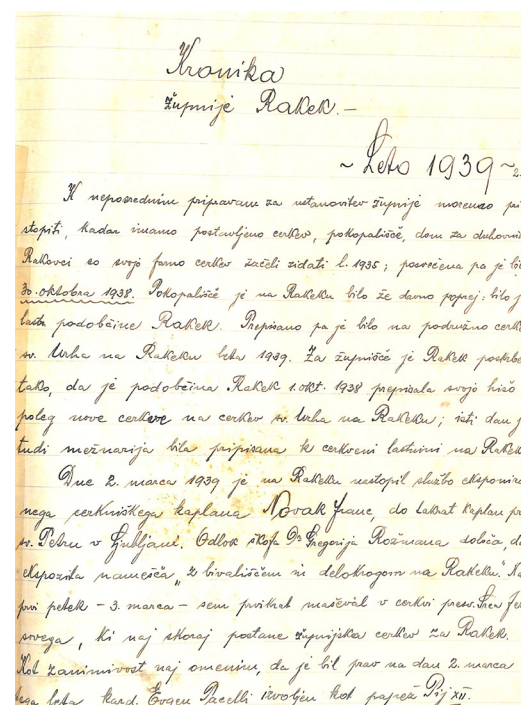 Kronika
župnije Rakek.—
~ Leto 1939 ~
K neposrednim pripravam za ustanovitev župnije moremo pri
stopiti, kadar imamo postavljeno cerkev, pokopališče, dom za duhovni
Rakovci so svojo farno cerkev začeli zidati l. 1935; posvečena pa je bi
30. oktobra 1938. Pokopališče je na Rakeku bilo že davno poprej: bilo j
last podobčine Rakek. Prepisano pa je bilo na podružno cerk
sv. Urha na Rakeku leta 1939. Za župnišče je Rakek poskrbe
tako, da je podobčina Rakek 1. okt. 1938 prepisala svojo hišo
poleg nove cerkve na cerkev sv. Urha na Rakeku; isti dan j
tudi mežnarija bila pripisana k cerkveni lastnini na Rakek
Dne 2. marca 1939 je na Rakeku nastopil službo eksponira
nega cerkniškega kaplana Novak Franc, do takrat kaplan pr
sv. Petru v Ljubljani. Odlok škofa Dr Gregorija Rožmana določa, d
ekspozita namešča „z bivališčem in delokrogom na Rakeku." Na
prvi petek – 3. marca – sem prvikrat maševal v cerkvi presv. Srca Je
sovega, ki naj skoraj postane župnijska cerkev za Rakek.
Kot zanimivost naj omenim, da je bil prav na dan 2. marca
tega leta kard. Evgen Pacelli izvoljen kot papež Pij XII.